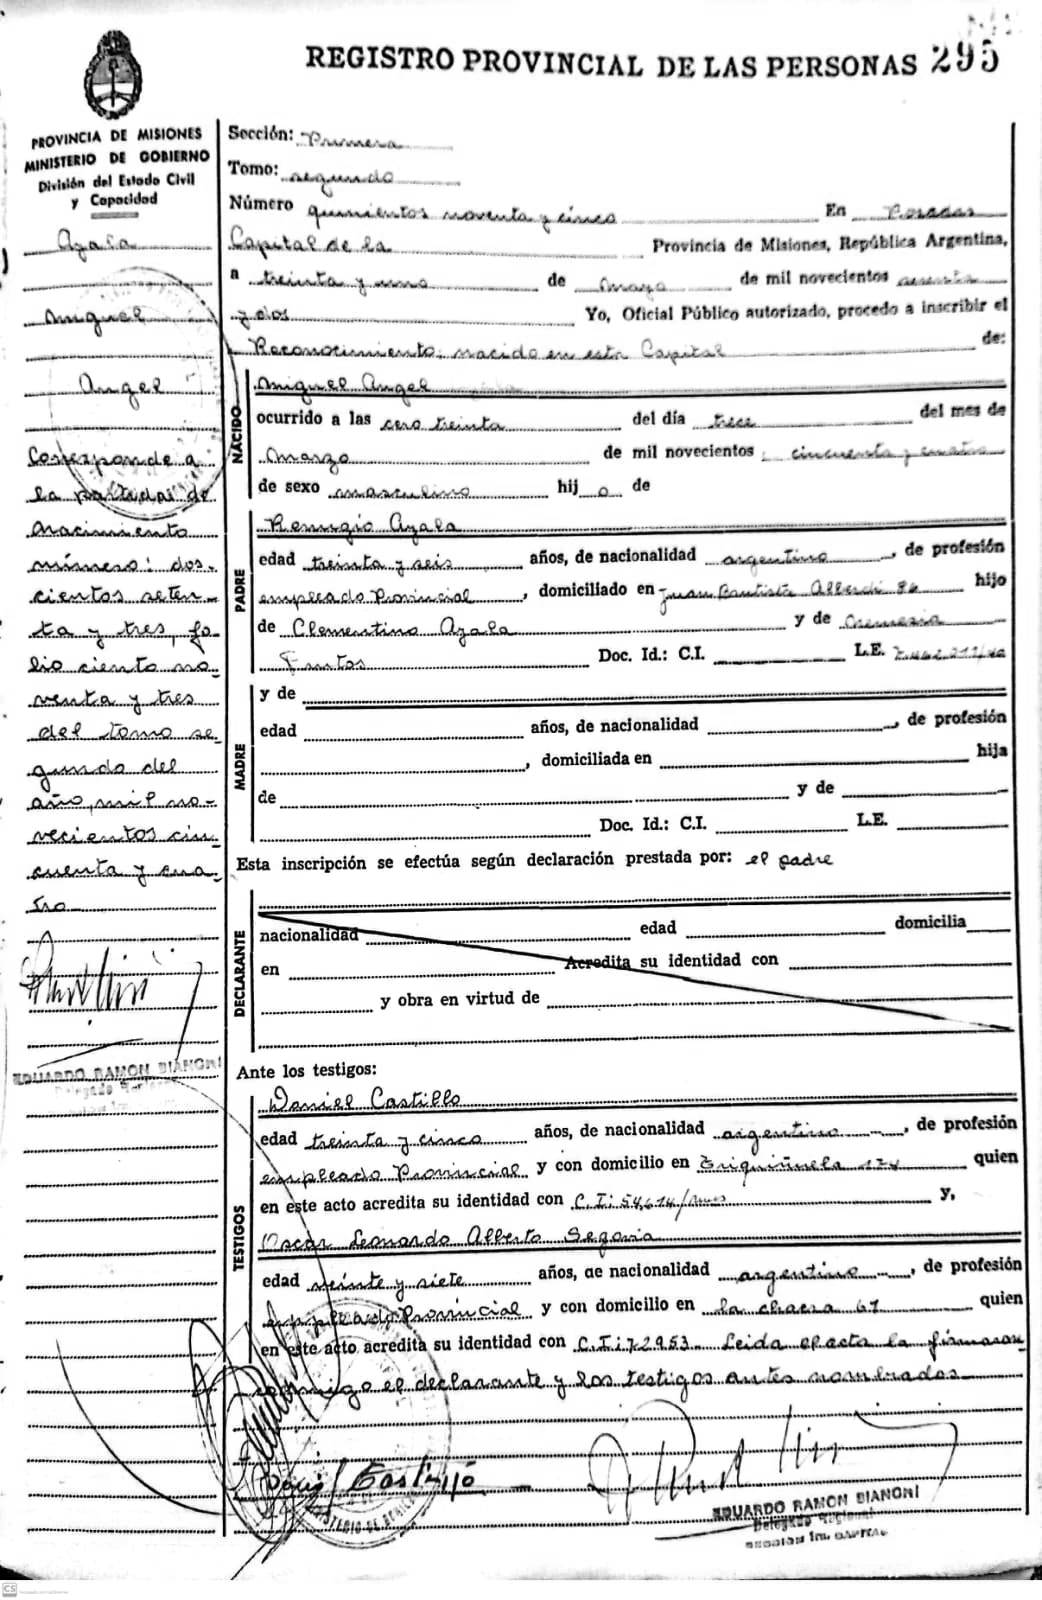 REGISTRO PROVINCIAL DE LAS PERSONAS 295
PROVINCIA DE MISIONES
MINISTERIO DE GOBIERNO
División del Estado Civil
y Capacidad
Ayala
Miguel
Angel
Corresponde a
la partida de
nacimiento
número: dos-
cientos seten-
ta y tres, fo-
lio ciento no-
venta y tres
del tomo se-
gundo del
año mil no-
vecientos cin-
cuenta y cua-
tro
EDUARDO RAMON BIANCHI
Sección: Primera
Tomo: segundo
Número quinientos noventa y cinco En Posadas
Capital de la Provincia de Misiones, República Argentina,
a treinta y uno de mayo de mil novecientos sesenta
y dos Yo, Oficial Público autorizado, procedo a inscribir el
Reconocimiento: nacido en esta Capital de:
NACIDO
Miguel Angel
ocurrido a las cero treinta del día trece del mes de
Marzo de mil novecientos cincuenta y cuatro
de sexo masculino hij o de
PADRE
Remigio Ayala
edad treinta y seis años, de nacionalidad argentino, de profesión
empleado Provincial, domiciliado en Juan Bautista Alberdi 86 hijo
de Clementino Ayala y de
Frutos Doc. Id.: C.I. L.E.
MADRE
y de
edad años, de nacionalidad , de profesión
, domiciliada en hija
de y de
Doc. Id.: C.I. L.E.
Esta inscripción se efectúa según declaración prestada por: el padre
DECLARANTE
nacionalidad edad domicilia
en Acredita su identidad con
y obra en virtud de
Ante los testigos:
TESTIGOS
Daniel Castillo
edad treinta y cinco años, de nacionalidad argentino, de profesión
empleado Provincial y con domicilio en quien
en este acto acredita su identidad con C.I: 54,614/ y,
Oscar Leonardo Alberto Segovia
edad veinte y siete años, de nacionalidad argentino, de profesión
empleado Provincial y con domicilio en la chacra 67 quien
en este acto acredita su identidad con C.I: 72953. Leida el acta la firmaron
conmigo el declarante y los testigos antes nombrados
EDUARDO RAMON BIANCHI
Delegado Regional
SECCION 1ra. CAPITAL
CS